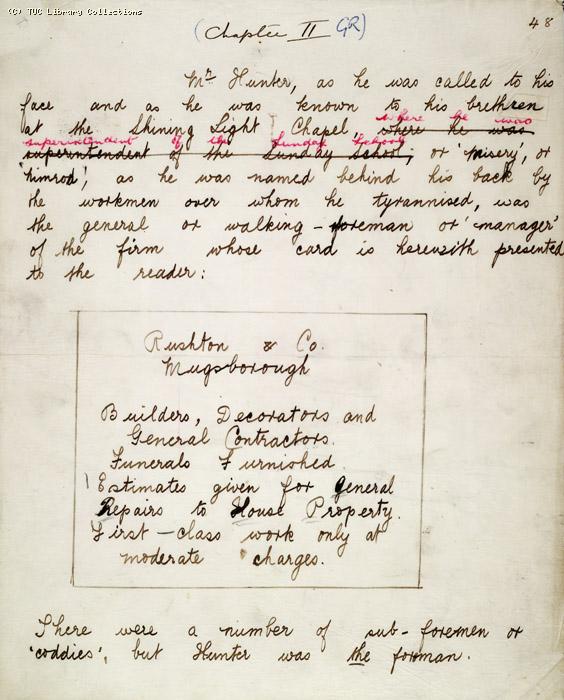 (C) TUC Library Collections
(Chapter II GR)
48
Mr Hunter, as he was called to his
face and as he was known to his brethren
at the Shining Light Chapel where he was
where he was
superintendent of the Sunday School
superintendent of the Sunday School, or 'misery', or
'Nimrod', as he was named behind his back by
the workmen over whom he tyrannised, was
the general or walking-foreman or 'manager'
of the firm whose card is herewith presented
to the reader:
Rushton & Co.
Mugsborough
Builders, Decorators and
General Contractors.
Funerals Furnished.
Estimates given for General
Repairs to House Property.
First-class work only at
moderate charges.
There were a number of sub-foremen or
'coddies', but Hunter was the forman.